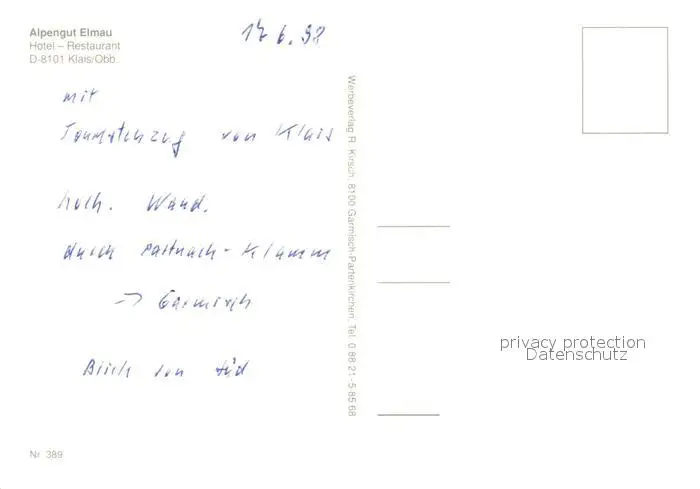 Alpengut Elmau
Hotel – Restaurant
D-8101 Klais/Obb.
17 6.92
mit
Touristenzug von Klais
hoch. Wand.
durch Partnach-Klamm
→ Garmisch
Blick von Süd
Nr. 389
Werbeverlag R. Kirsch, 8100 Garmisch-Partenkirchen, Tel. 0 88 21 - 5 85 68
privacy protection
Datenschutz